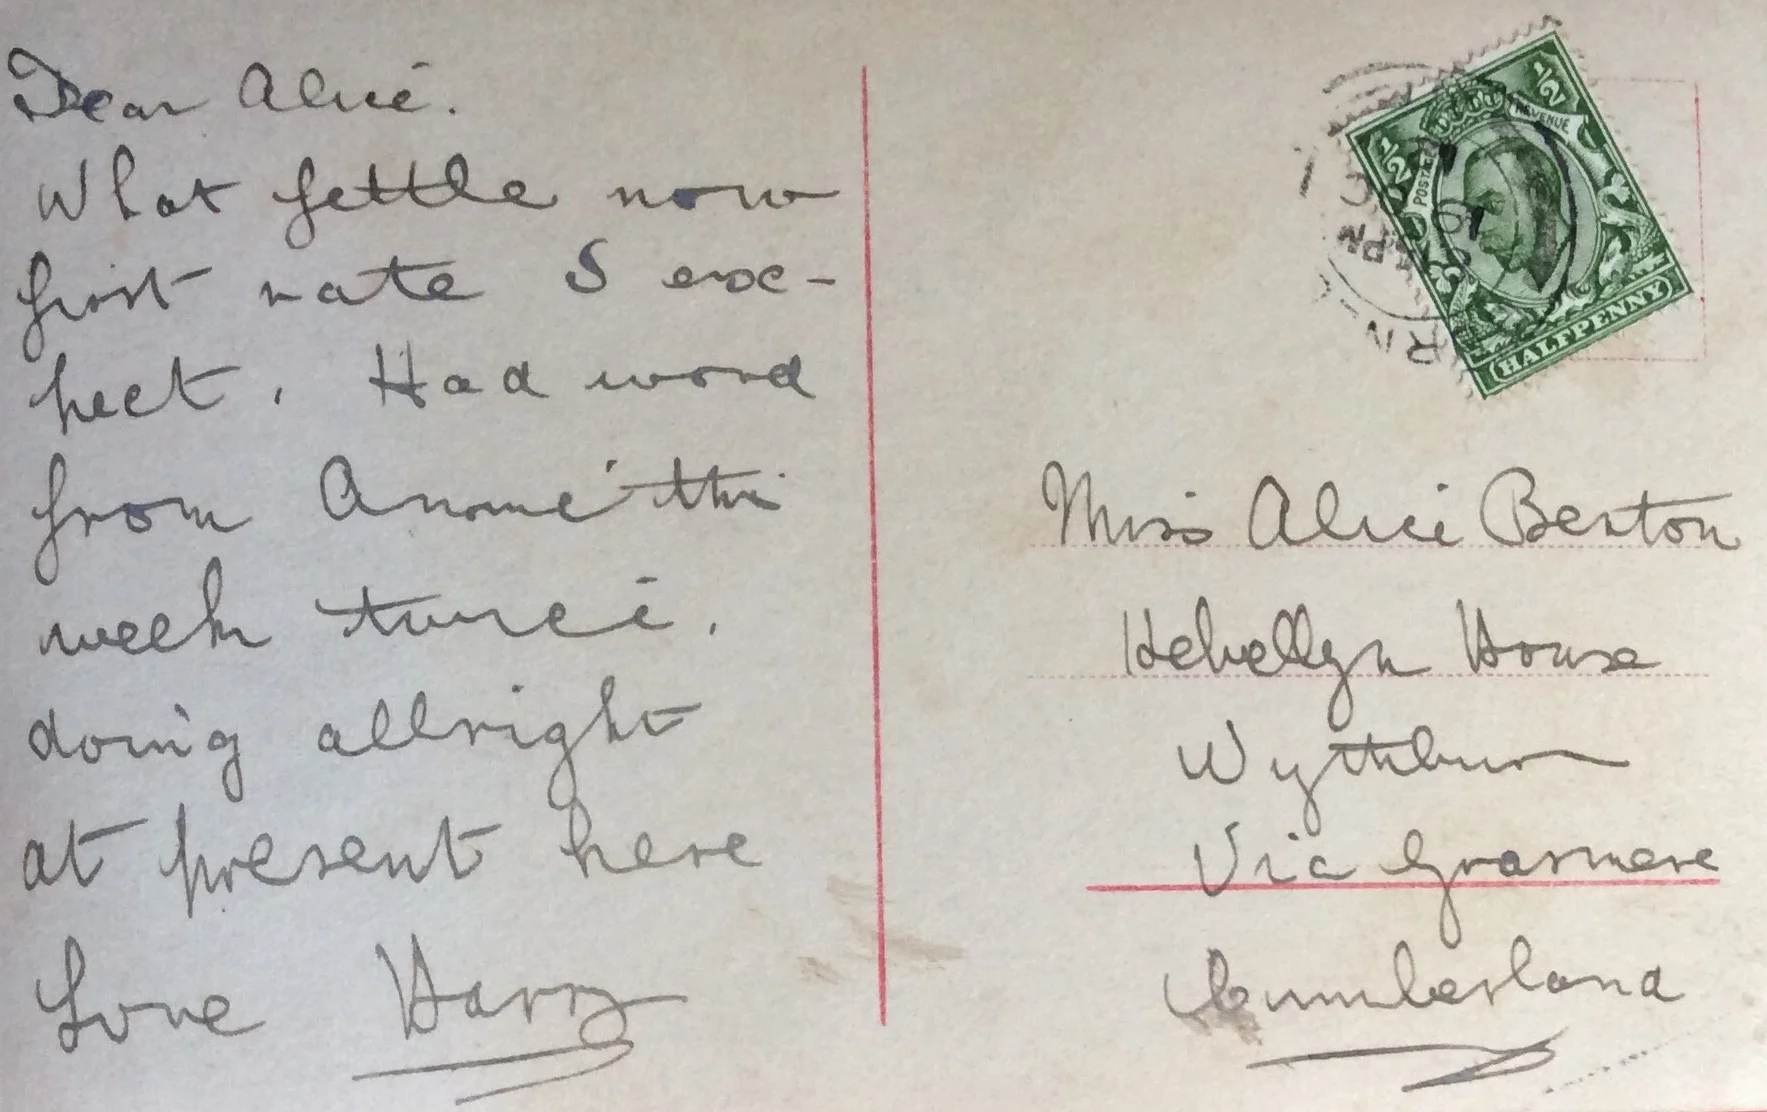 Dear Alice.
What fettle now
first rate I exc-
pect. Had word
from Annie this
week twice.
doing allright
at present here
Love Harry
1/2
1/2
POSTAGE
REVENUE
HALFPENNY
PM
Miss Alice Benton
Helvellyn House
Wythburn
Via Grasmere
Cumberland